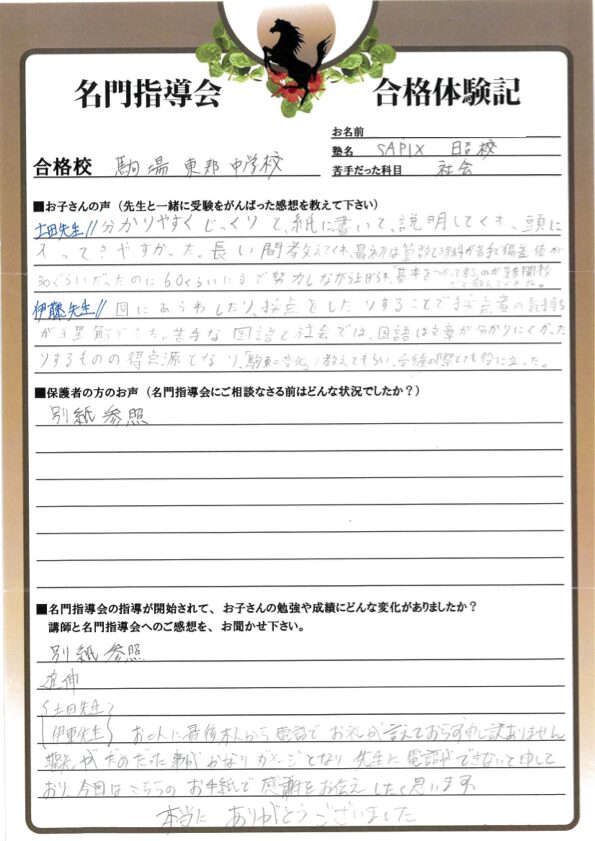 名門指導会 合格体験記
お名前
合格校 駒場東邦中学校
塾名 SAPIX 日吉校
苦手だった科目 社会
■お子さんの声（先生と一緒に受験をがんばった感想を教えて下さい）
土田先生// 分かりやすくじっくりと、紙に書いて、説明してくれ、頭に
入ってきやすかった。長い間教えてくれ、最初は算数と理科が苦手で偏差値が
30ぐらいだったのに60くらいにまで努力しながら上げられ、基本をつかって考えるのが難関校
だと教えてくれた。
伊藤先生// 図にあらわしたり、採点をしたりすることで採点者の気持ち
が理解できた。苦手な国語と社会では、国語は文章が分かりにくかった
りするものの得点源となり、駒東に変化して教えてもらい、受験の際とても役に立った。
■保護者の方のお声（名門指導会にご相談なさる前はどんな状況でしたか？）
別紙参照
■名門指導会の指導が開始されて、お子さんの勉強や成績にどんな変化がありましたか？
講師と名門指導会へのご感想を、お聞かせ下さい。
別紙参照
追伸
土田先生
伊東先生 お二人に最後本人から電話でお礼が言えておらず申し訳ありません
がだめだった事がかなりダメージとなり先生に電話ができないと申して
おり、今回はこちらのお手紙で感謝をお伝えしたく思います。
本当にありがとうございました